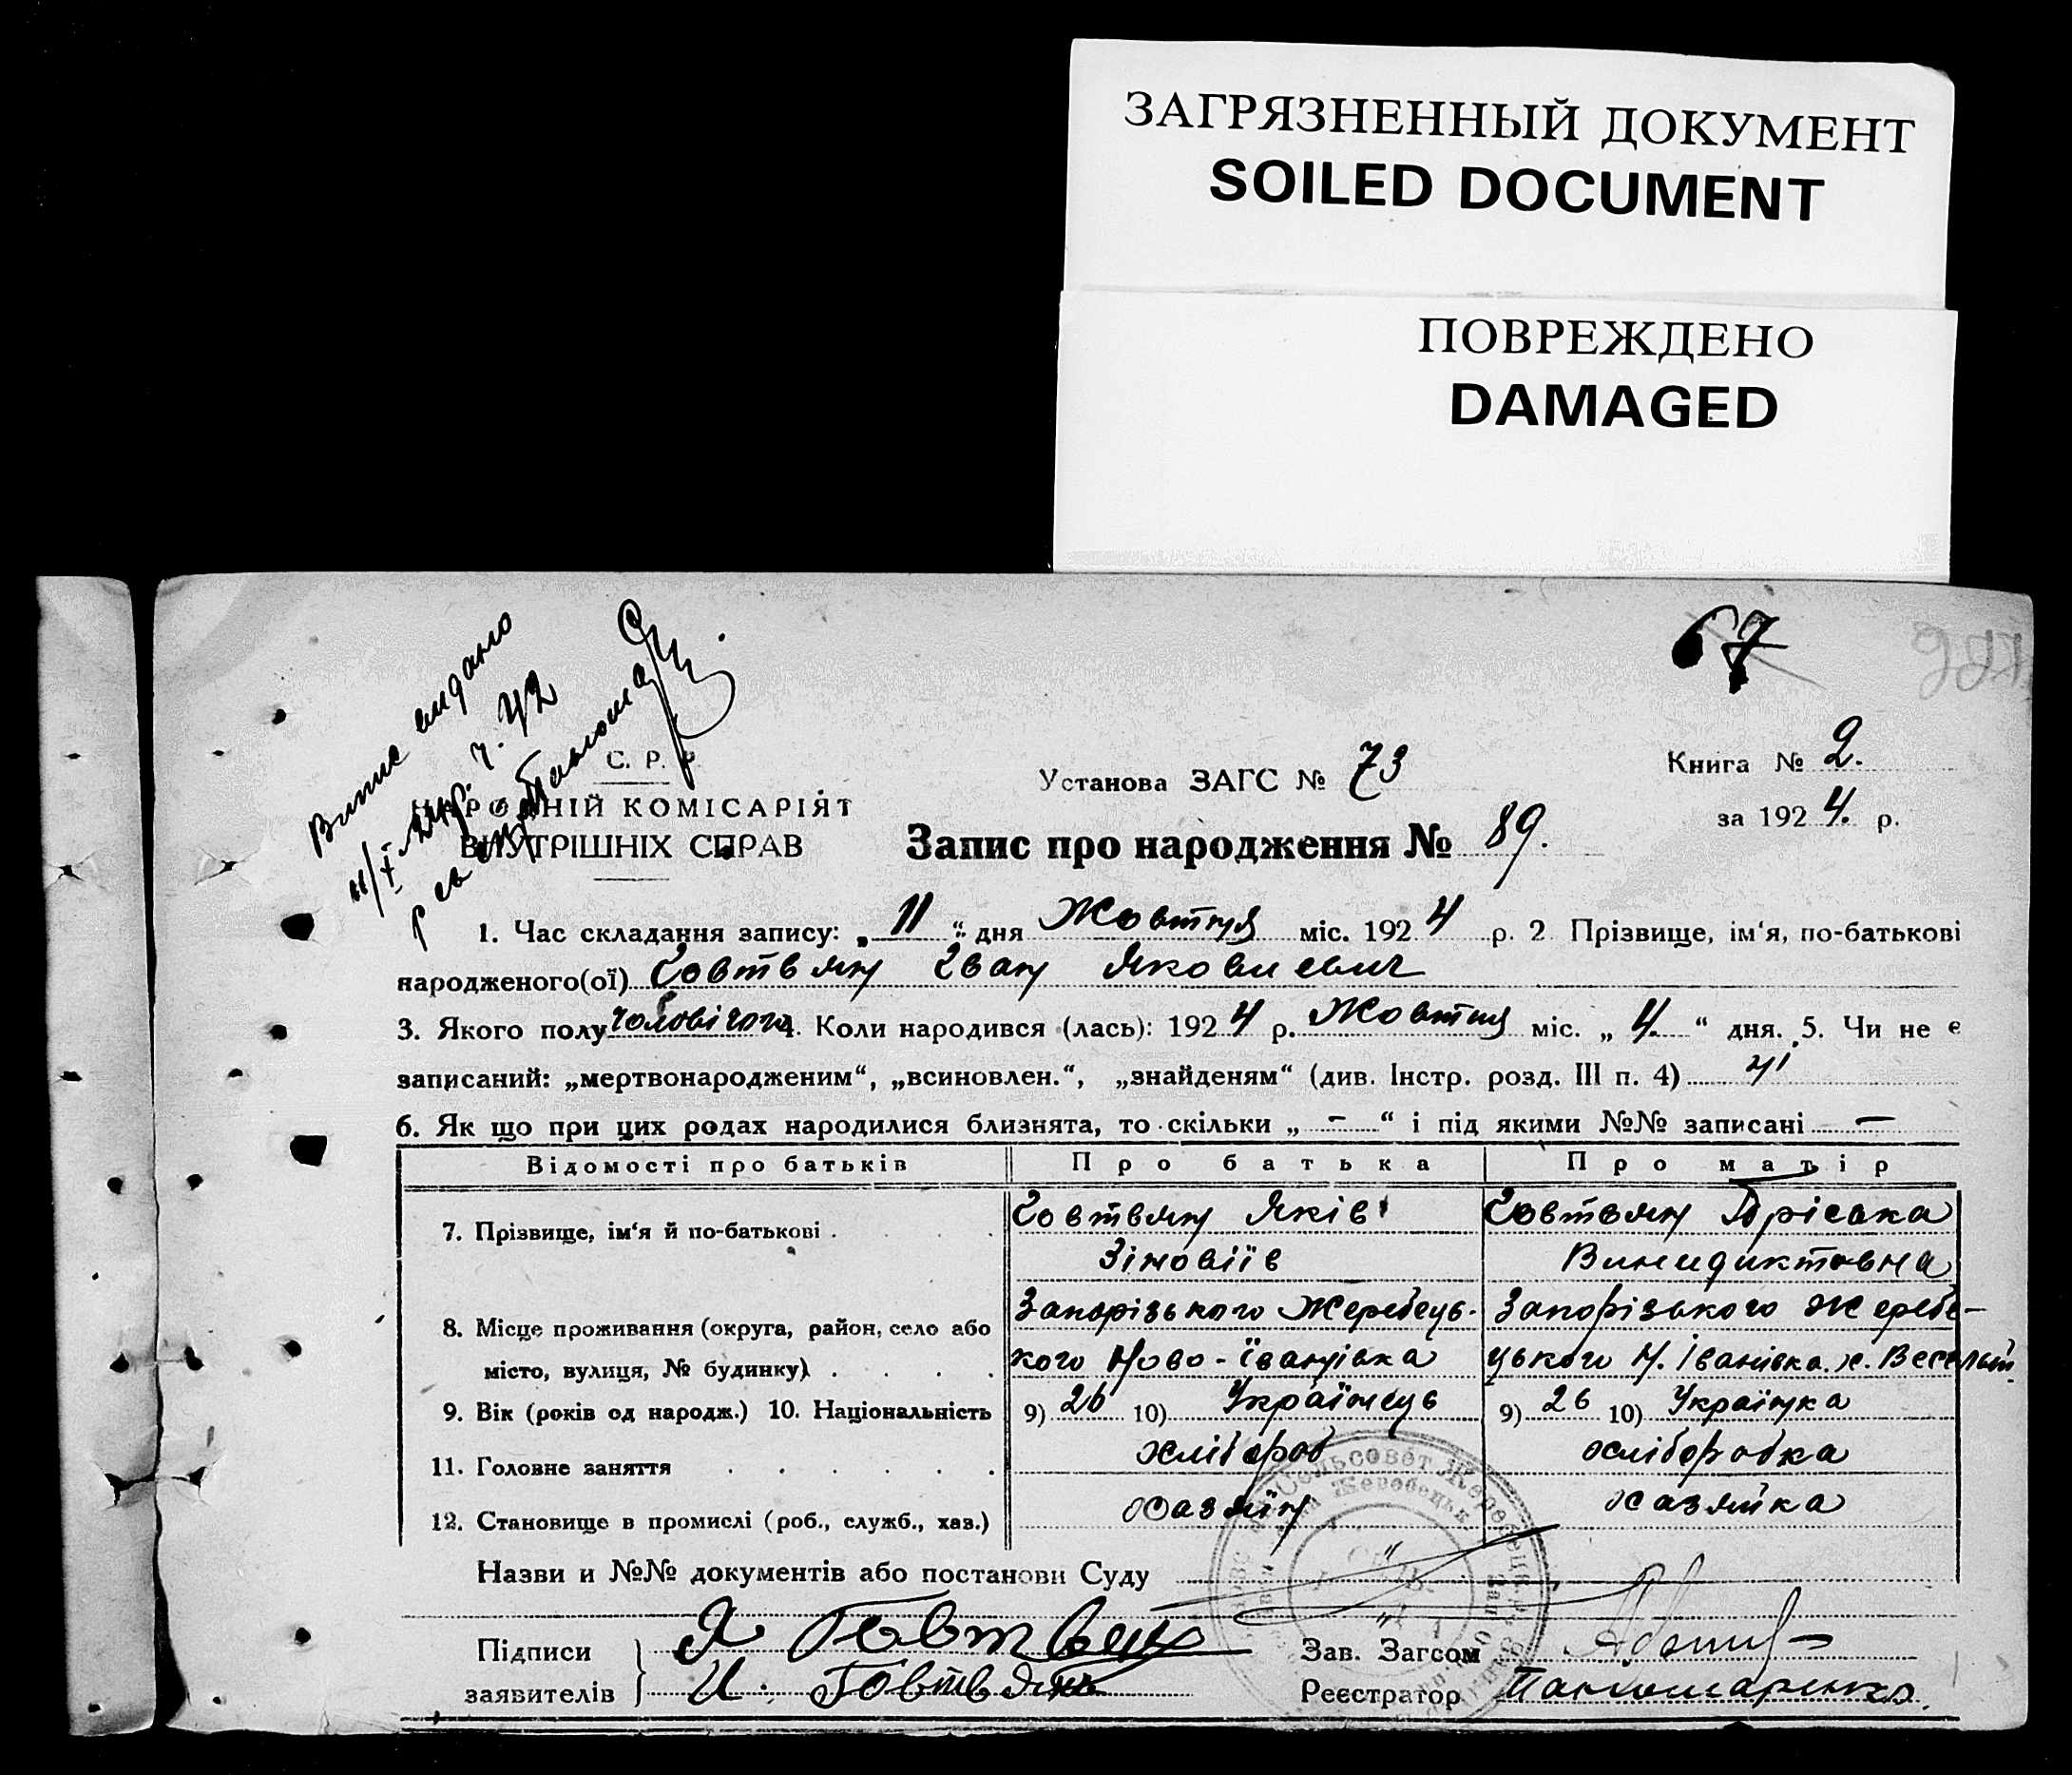 ЗАГРЯЗНЕННЫЙ ДОКУМЕНТ
SOILED DOCUMENT
ПОВРЕЖДЕНО
DAMAGED
67
Випис видано
С. Р. Р.
НАРОДНІЙ КОМІСАРІЯТ
ВНУТРІШНІХ СПРАВ
Установа ЗАГС № 73
Книга № 2.
за 1924. р.
Запис про народження № 89.
1. Час складання запису: „11“ дня Жовтня міс. 1924 р. 2 Прізвище, ім‘я, по-батькові
народженого(ої) Говтвян Іван Якович
3. Якого полу чоловічого 4. Коли народився (лась): 1924 р. Жовтня міс. „4.“ дня. 5. Чи не є
записаний: „мертвонародженим“, „всиновлен.“, „знайденям“ (див. Інстр. розд. III п. 4) ні
6. Як що при цих родах народилися близнята, то скільки „ - “ і під якими №№ записані —
Відомості про батьків Про батька Про матір
7. Прізвище, ім‘я й по-батькові Говтвян Яків Говтвян
Зіновіїв
8. Місце проживання (округа, район, село або Запорізького Жеребець- Запорізького Жеребе-
місто, вулиця, № будинку) кого Ново-Іванівка цького Н. Іванівка. х.
9. Вік (років од народж.) 10. Національність 9) 26 10) Українець 9) 26 10) Українка
11. Головне заняття хлібороб хлібородка
12. Становище в промислі (роб., служб., хаз.) хазяїн хазяйка
Назви и №№ документів або постанови Суду
Підписи Я Говтвян Зав. Загсом
заявителів И. Говтвянь Реєстратор Паномаренко